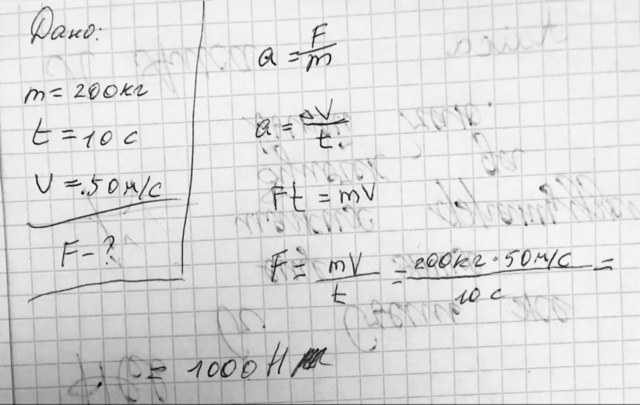 Дано:
m = 200кг
t = 10 с
V = 50 м/с
F - ?
a = F/m
a = ΔV/t
Ft = mV
F = mV/t = 200кг · 50 м/с / 10 с =
= 1000 Н